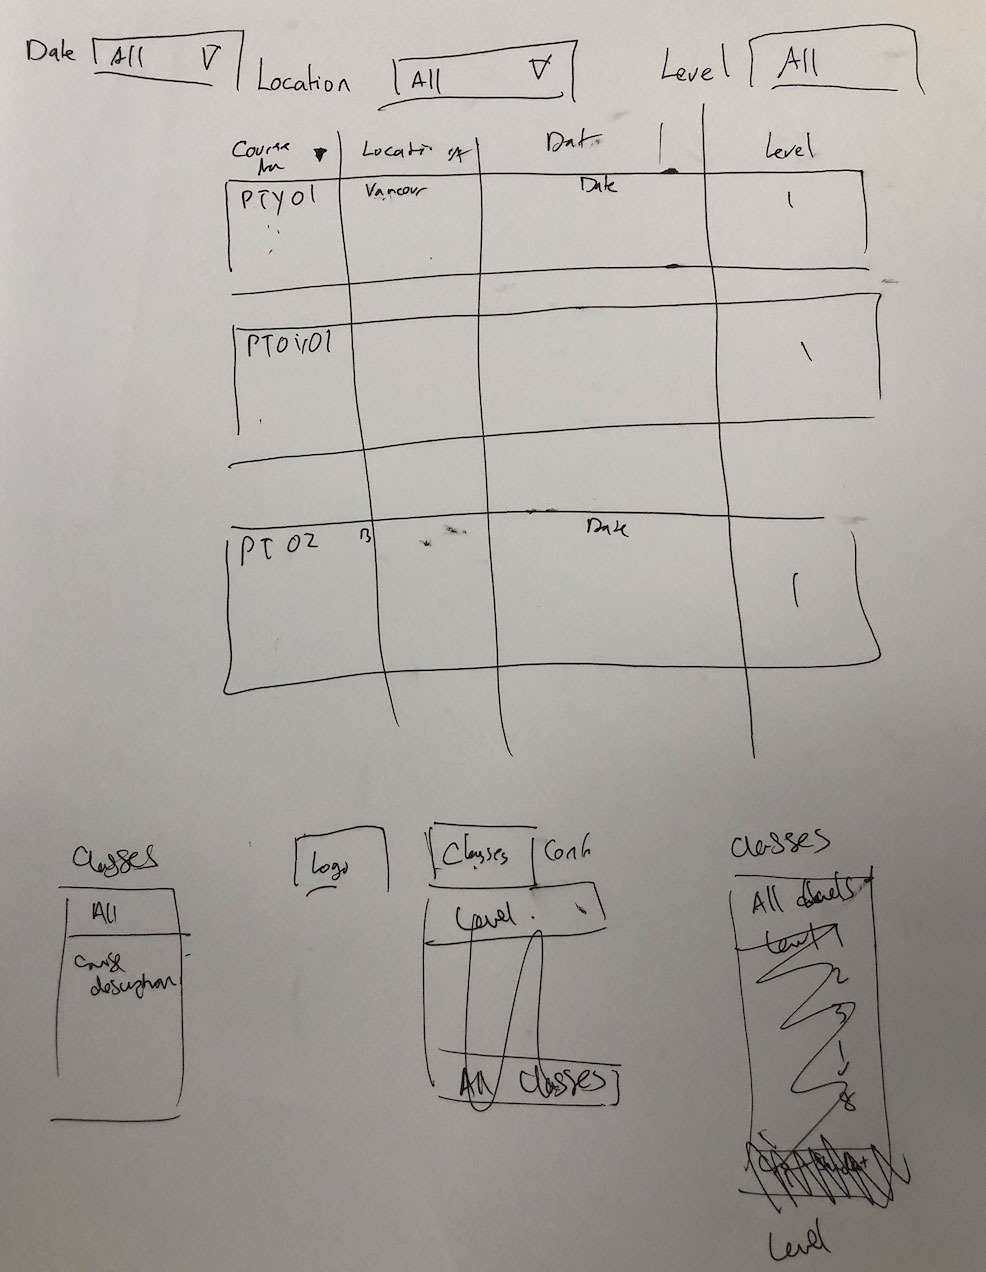 Date All
Location All
Level All
Course
Locati
Dat
Level
PTY01
Vancour
Date
1
PT0Y01
1
PT 02 B
Date
1
Classes
All
description
Logo
Classes Cont
Level
All Classes
Classes
All
Level 1
2
3
8
Level